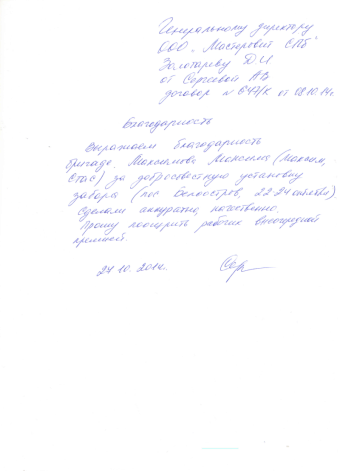 Генеральному директору
ООО "Мастеровит СПб"
Золотареву Д.И
от Сергеевой АВ
договор № 647/К от 08.10.14г.
Благодарность
Выражаем благодарность
бригаде Максимова Максима (Максим,
Стас) за добросовестную установку
забора (пос Белоостров, 22-24 октября)
Сделали аккуратно, качественно.
Прошу поощрить рабочих внеочередной
премией.
24.10.2014.